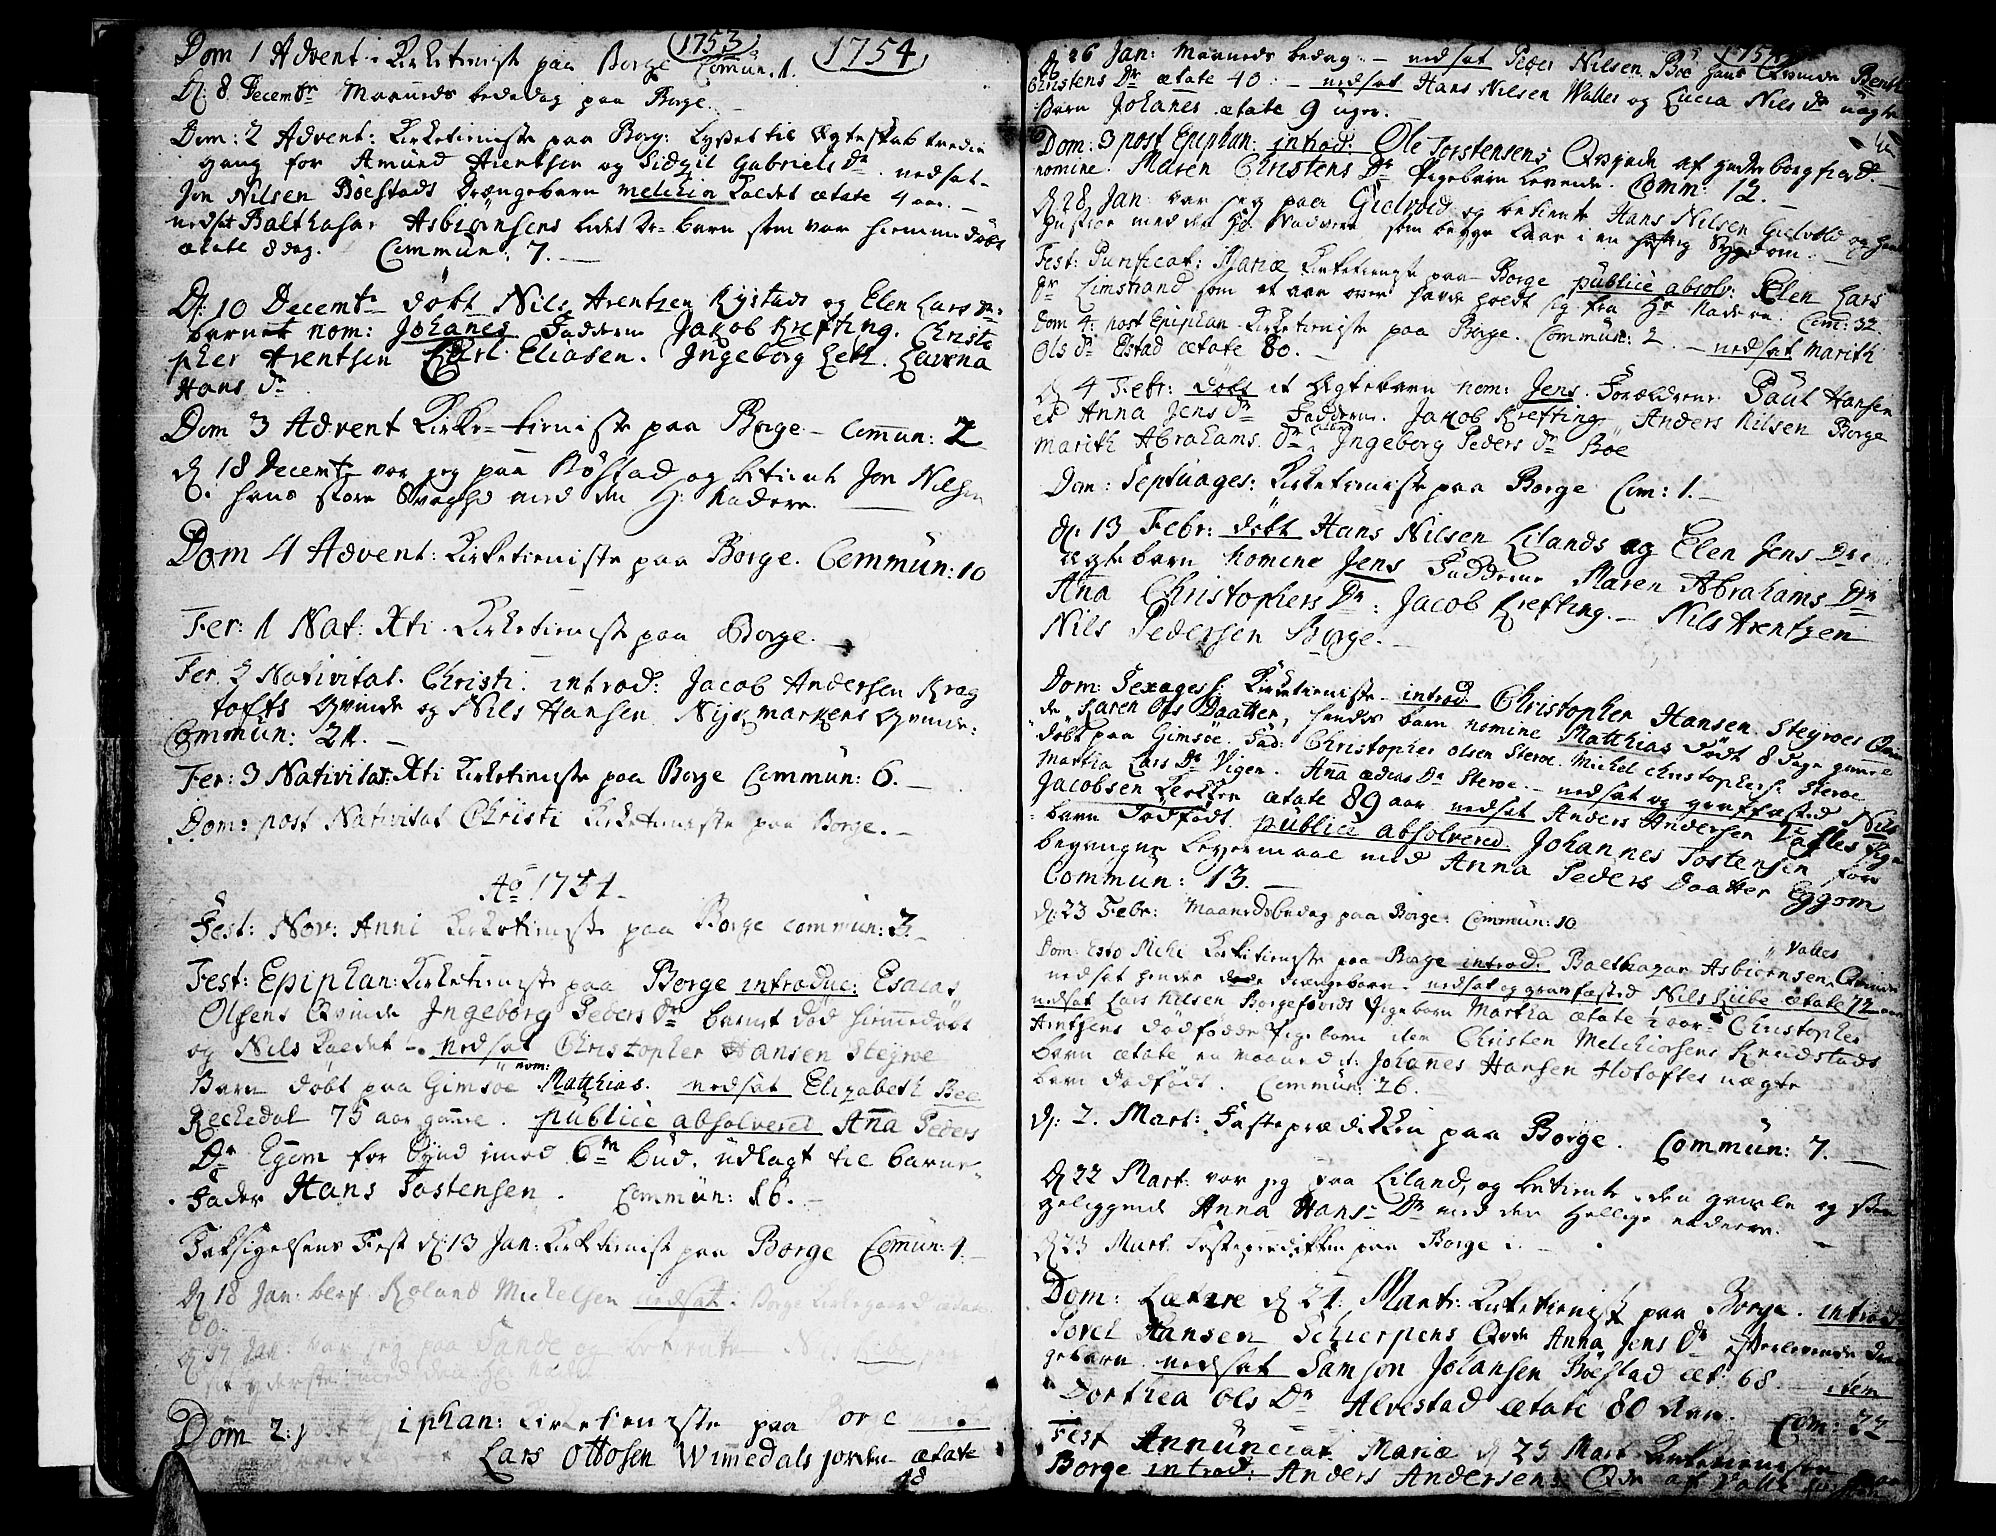 1753
1754
Dom 1 Advent: Kirketieniste paa Borge Com̄un: 1.
D: 8 Decembr Maaneds bededag paa Borge.
Dom: 2 Advent: Kirketieniste paa Borg: lyset til Ægteskab tredie
gang for Amund Arentsen og Sidzil Gabriels Dr nedsat
Jon Nilsen Böestads drængebarn Melchior kaldet ætate 4 aar. —
nedsat Balthasar Asbiørnsens lidet barn som var hiemmedöbt
ætate 8 dag. Com̄un: 7. —
D: 10 Decembr döbt Nils Arentzen Rystads og Elen Lars Dr:
barnet nom: Johanes Faddere Jakob Krefting. Christo
pher Arentsen Carl Eliasen. Ingeborg Lett. Lavrna
Hans Dr
Dom 3 Advent Kirke-tieniste paa Borge — Com̄un: 2
D 18 Decembr var jeg paa Böstad og betiente Jon Nilsen
i hans store Svaghed med den H: Nadere.
Dom 4 Advent: Kirketieniste paa Borge. Com̄un: 10
Fer: 1 Nat: Xti Kirketieniste paa Borge. —
Fer. 2 Nativitat. Christi. introd: Jacob Andersen Krag
tofts Qvinde og Nils Hansen Nijkmarkens Qvinde:
Com̄un: 21. —
Fer: 3 Nativitat: Xti Kirketieniste paa Borge Com̄un: 6. —
Dom: post Nativitat Christi Kirketieniste paa Borge. —
Ao 1754.
Fest: Nov: Anni Kirketieniste paa Borge com̄un: 3. —
Fest: Epiphan: Kirketieniste paa Borge introduc: Esaias
Olsens Qvinde Ingeborg Peders Dr barnet död hiem̄edöbt
og Nils kaldet — nedsat Christopher Hansen Steyroe
Barn döbt paa Gimsöe nom: Matthias. nedsat Elizabeth Bee
Reckedal 75 aar gam̄el. publicè absolvered An̄a Peders
Dr Egom for Synd imod 6te bud, udlagt til barne-
fader Hans Tostensen. Com̄un: 16. —
Taksigelsens Fest d: 13 Jan: Kirketieniste paa Borge Com̄un: 4. —
D 18 Jan: blef Roland Michelsen nedsat i Borge Kirkegaard ætate
60.
Jan: var jeg paa Sande og betiente
Dom 2: post Epiphan: Kirketieniste paa Borge
Lars Ottosen Wim̄edals jorden ætate
48
1754
D 26 Jan: Maaneds bedag — nedsat Peder Nilsen Böe hans Qvinde Berith
Christens Dr ætate 40. — nedsat Hans Nilsen Walles og Lucia Nils Dr uægte
barn Johanes ætate 9 uger.
Dom: 3 post Epiphan: introd: Ole Torstensens Qvinde af Gudtborgfiord.
nomine. Maren Christens Dr Pigebarn levende. Com̄: 12. —
D 28 Jan: var jeg paa Gielvold og betiente Hans Nilsen Gielvold og hans
Hustroe med den H: Nadvere som begge laae i en heftig Sygdom. —
Fest: Purificat: Mariæ Kirketieniste paa Borge publicè absolv: Elen Lars
Dr Limstrand som et aar over havde holdt sig fra Hr Nadere. Com: 32.
Dom 4: post Epiphan Kirketieniste paa Borge. Com̄un: 2. — nedsat Marith
Ols Dr Estad ætate 80. —
D 4 Febr: döbt et Ægtebarn nom: Jens. Forældrene Paul Hansen
et Anna Jens Dr Faddere. Jakob Krefting Anders Nilsen Borge
Marith Abrahams Dr Ingeborg Peders Dr Böe
Dom: Septuages: Kirketieniste paa Borge Com: 1. —
D: 13 Febr: döbt Hans Nilsen Lilands og Elen Jens Drs
Ægtebarn Nomine Jens Faddere Maren Abrahams Dr
An̄a Christophers Dr: Jacob Krefting. — Nils Arentzen
Nils Pedersen Borge. —
Dom: Sexages: Kirketieniste introd: Christopher Hansen Steyroes Qvin
de Karen Ols Daatter, hendes barn nomine Matthias död 8 dage gam̄el
döbt paa Gimsöe. Fad: Christopher Olsen Steroe. Michel Christophers: Steroe.
Martha Lars Dr Vigen. An̄a Anders Dr Steroe. — nedsat og graffæsted Nils
Jacobsen Lekken ætate 89 aar nedsat Anders Andersen Valles Pige
barn dödfödt. publicè absolvered Johannes Tostensen for
begangne Leyermaal med Anna Peders Daatter Eggom
Com̄un: 13. —
D: 23 Febr: Maanedsbedag paa Borge: Com̄un: 10
Dom: Esto Mihi Kirketieniste paa Borge introd: Balthazar Asbiörnsens Valles Qvinde
nedsat hendes döde drængebarn. nedsat og gravfæsted Nils Liibe ætate 72 aar
nedsat Lars Nilsen Borgefiords Pigebarn Martha ætate ½ aar Christopher
Arntzens dödfödde Pigebarn item Christen Melchiorsens Knudstads
barn ætate en maaned. it. Johanes Hansen Hotoftes uægte
barn dödfödt. Com̄un: 26. —
D: 2. Mart: Fasteprædikken paa Borge. Com̄un: 7. —
D 22 Mart: var jeg paa Liland, og betiente den gamle og senge
geliggende Anna Hans Dr med den Hellige nadere.
D 23 Mart. Fasteprediken paa Borge. —
Dom: Lætare d 24 Mart: Kirketieniste paa Borge. introd:
Povel Hansen Schierpens Qvde Anna Jens Dr efterlevende dræn
gebarn nedsat Samson Johansen Böestad æt: 68 — item
Dorthea Ols Dr Alvestad ætate 80 Aar. Com: 22 —
Fest Annunciat Mariæ d 25 Mart Kirketieniste paa
Borge introd: Anders Andersens Qde af Valle